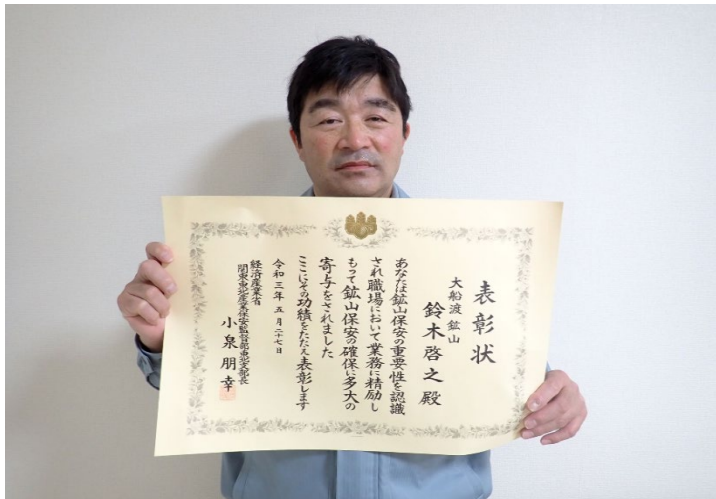 表彰状
大船渡鉱山
鈴木啓之殿
あなたは鉱山保安の重要性を認識
され職場において業務に精励し
もって鉱山保安の確保に多大の
寄与をされました
ここにその功績をたたえ表彰します
令和三年五月二十七日
経済産業省
関東東北産業保安監督部東北支部長
小泉朋幸